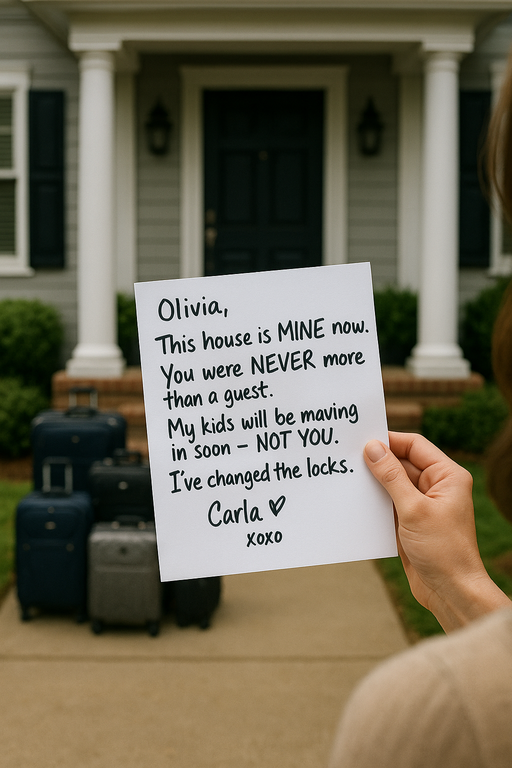 Olivia,
This house is MINE now.
You were NEVER more
than a guest.
My kids will be maving
in soon – NOT YOU.
I've changed the locks.
Carla ♡
xoxo